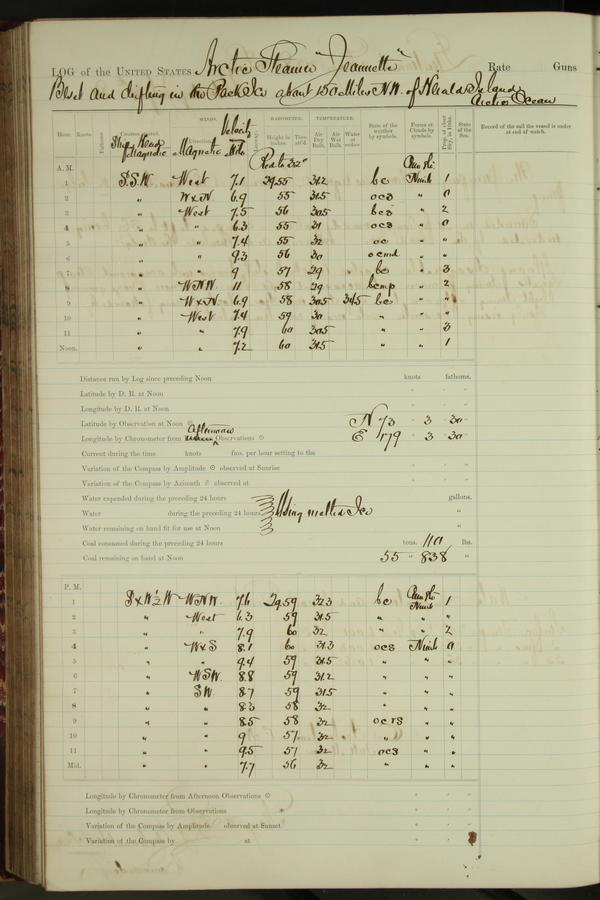 LOG of the United States Arctic Steamer "Jeannette" Rate Guns
Beset and drifting in the Pack Ice about 150 Miles N.W. of Herald Island
Arctic Ocean
WINDS. Velocity BAROMETER. TEMPERATURE. State of the weather by symbols. Forms of Clouds by symbols. Prop. of clear Sky, in 10ths. State of the Sea. Record of the sail the vessel is under at end of watch.
Hour. Knots. Fathoms. Courses steered. Ship's Head Magnetic Direction. Magnetic Height in inches. Ther. att'd. Air Dry Bulb. Air Wet Bulb. Water at surface.
A.M. Red. to 32°
1 S.S.W. West 7.1 29.55 31.2 bc Nimb 1
2 " W x N. 6.9 55 31.5 ocs " 0
3 " West 7.5 56 30.5 bcs " 2
4 " " 6.3 55 31 ocs " 0
5 " " 7.4 55 32 oc " "
6 " " 9.3 56 30 ocmd " "
7 " " 9 57 29 bc " 3
8 " W.N.W. 11 58 29 bcmp " 2
9 " W x N. 6.9 58 30.5 34.5 bc " "
10 " West 7.4 59 30 " " "
11 " " 7.9 60 30.5 " " 3
Noon. " " 7.2 60 31.5 " " 1
Distance run by Log since preceding Noon knots fathoms.
Latitude by D. R. at Noon
Longitude by D. R. at Noon
Latitude by Observation at Noon N 73 3 30
Longitude by Chronometer from Afternoon Observations E 179 3 30
Current during the time knots fms. per hour setting to the
Variation of the Compass by Amplitude observed at Sunrise
Variation of the Compass by Azimuth observed at
Water expended during the preceding 24 hours gallons.
Water during the preceding 24 hours Using melted Ice "
Water remaining on hand fit for use at Noon "
Coal consumed during the preceding 24 hours tons. 110 lbs.
Coal remaining on hand at Noon 55 " 838 "
P.M.
1 S x W ½ W W.N.W. 7.6 29.59 32.3 bc Nimb 1
2 " West 6.3 59 31.5 " " "
3 " " 7.9 60 32 " " 2
4 " W x S 8.1 60 31.3 ocs Nimb 0
5 " " 9.4 59 31.5 " " "
6 " W.S.W. 8.8 59 31.2 " " "
7 " S.W. 8.7 59 31.5 " " "
8 " " 8.3 58 32 " " "
9 " " 8.5 58 32 ocrs " "
10 " " 9 57 32 " " "
11 " " 9.5 57 32 ocs " "
Mid. " " 7.7 56 32 " " "
Longitude by Chronometer from Afternoon Observations
Longitude by Chronometer from Observations
Variation of the Compass by Amplitude observed at Sunset
Variation of the Compass by at